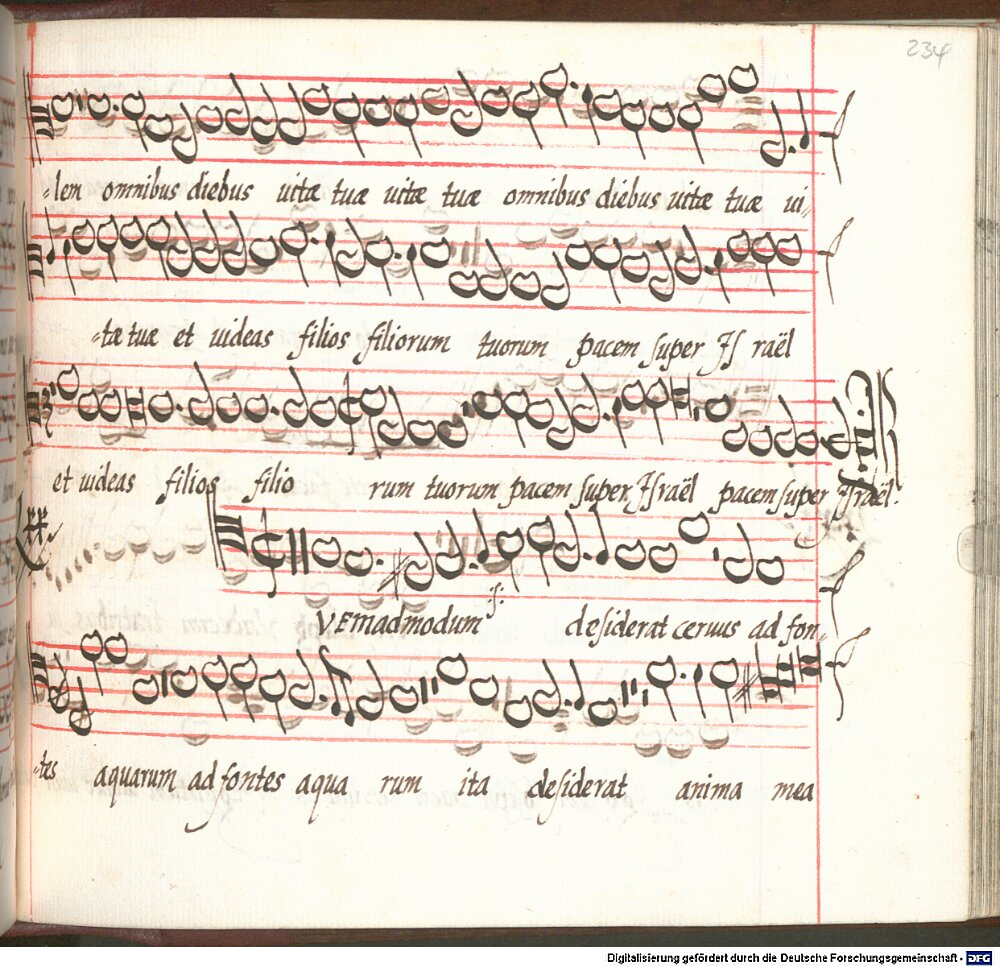 234
-lem omnibus diebus uitæ tuæ uitæ tuæ omnibus diebus uitæ tuæ ui-
-tæ tuæ et uideas filios filiorum tuorum pacem super Is raël
et uideas filios filio rum tuorum pacem super Israël pacem super Israël.
VEmadmodum desiderat ceruus ad fon-
-tes aquarum ad fontes aqua rum ita desiderat anima mea
Digitalisierung gefördert durch die Deutsche Forschungsgemeinschaft - DFG